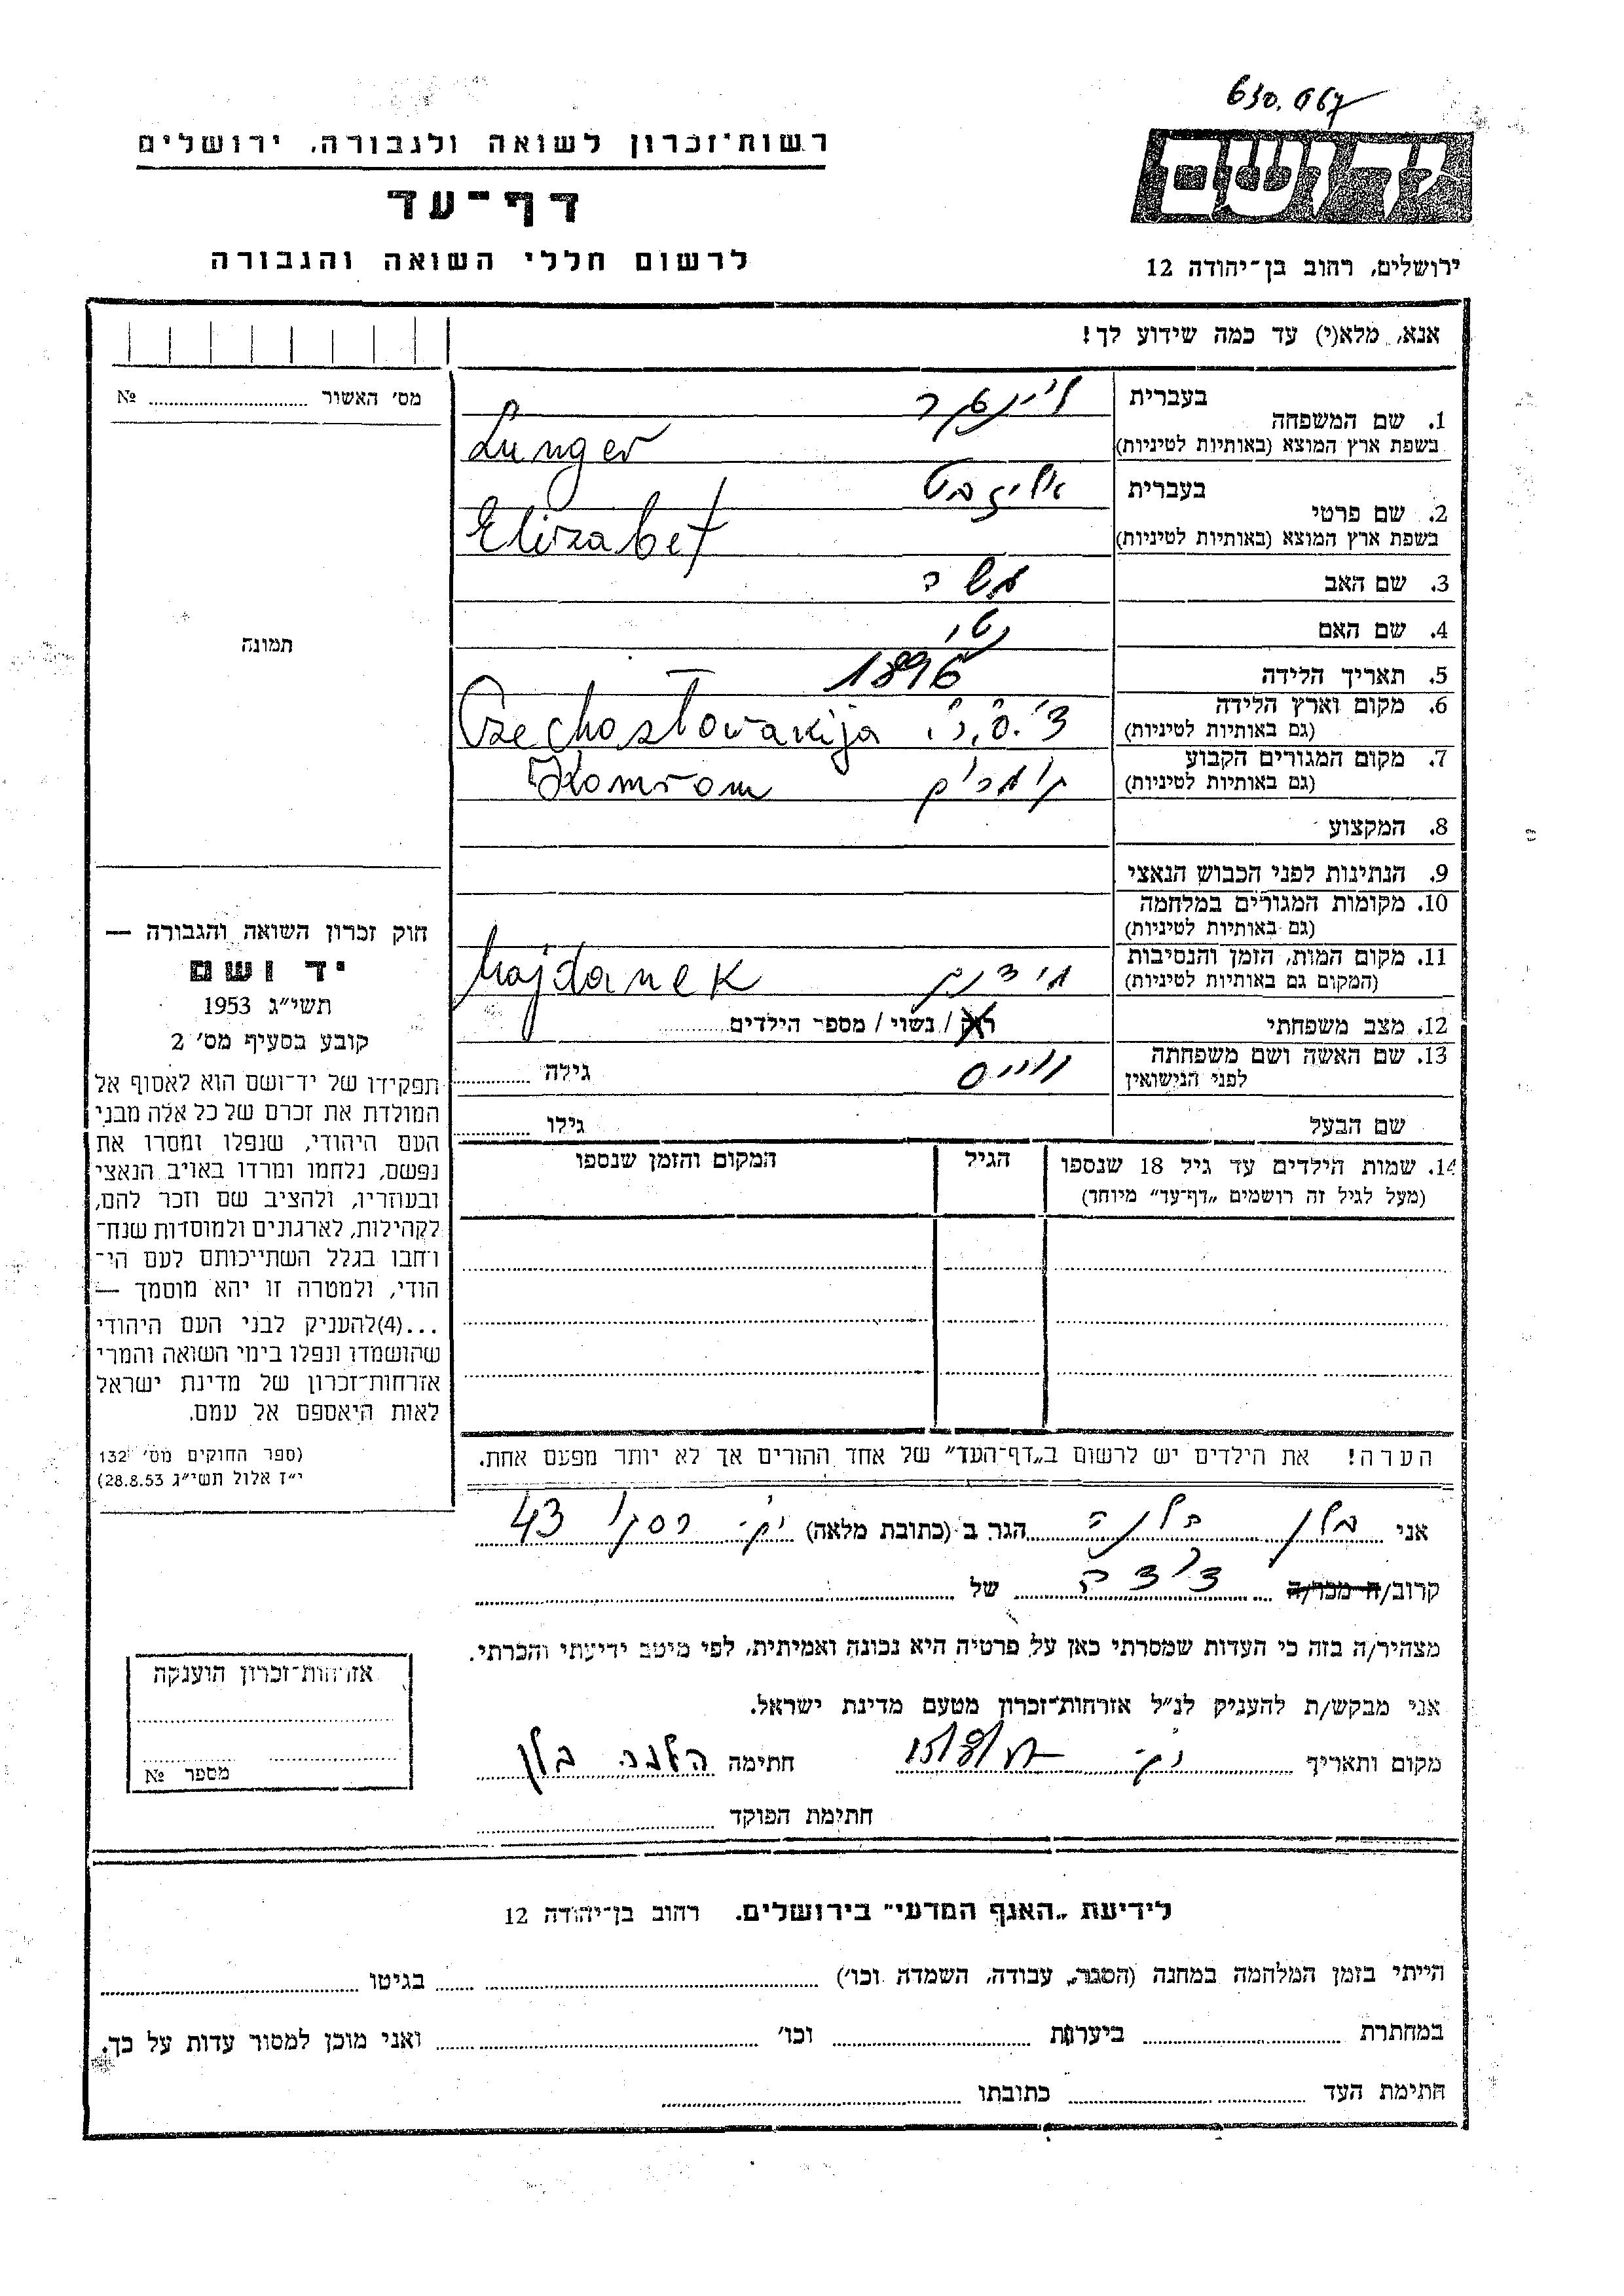 630.067
יד ושם
ירושלים, רחוב בן־יהודה 12
רשות־זכרון לשואה ולגבורה, ירושלים
דף־עד
לרשום חללי השואה והגבורה
אנא, מלא(י) עד כמה שידוע לך!
1. שם המשפחה
בעברית
בשפת ארץ המוצא (באותיות לטיניות) Lunger
2. שם פרטי
בעברית אליזבט
בשפת ארץ המוצא (באותיות לטיניות) Elizabet
3. שם האב משה
4. שם האם
5. תאריך הלידה 1896
6. מקום וארץ הלידה
(גם באותיות לטיניות) צ'.ס.ר. Czechosłowakija
7. מקום המגורים הקבוע
(גם באותיות לטיניות) קומרום Komrom
8. המקצוע
9. הנתינות לפני הכבוש הנאצי
10. מקומות המגורים במלחמה
(גם באותיות לטיניות)
11. מקום המות, הזמן והנסיבות
(המקום גם באותיות לטיניות) Majdanek
12. מצב משפחתי רוק / נשוי / מספר הילדים
13. שם האשה ושם משפחתה
לפני הנישואין ווייס גילה
שם הבעל גילו
14. שמות הילדים עד גיל 18 שנספו הגיל המקום והזמן שנספו
(מעל לגיל זה רושמים „דף־עד” מיוחד)
הערה! את הילדים יש לרשום ב„דף־העד” של אחד ההורים אך לא יותר מפעם אחת.
מס׳ האשור №
תמונה
חוק זכרון השואה והגבורה —
יד ושם
תשי״ג 1953
קובע בסעיף מס׳ 2
תפקידו של יד־ושם הוא לאסוף אל
המולדת את זכרם של כל אלה מבני
העם היהודי, שנפלו ומסרו את
נפשם, נלחמו ומרדו באויב הנאצי
ובעוזריו, ולהציב שם וזכר להם,
לקהילות, לארגונים ולמוסדות שנח־
רבו בגלל השתייכותם לעם הי־
הודי, ולמטרה זו יהא מוסמך —
...(4)להעניק לבני העם היהודי
שהושמדו ונפלו בימי השואה והמרי
אזרחות־זכרון של מדינת ישראל
לאות היאספם אל עמם.
(ספר החוקים מס׳ 132
י״ז אלול תשי״ג 28.8.53)
אני בלן הלנה הגר ב (כתובת מלאה) 43
קרוב/ה מכר/ה של
מצהיר/ה בזה כי העדות שמסרתי כאן על פרטיה היא נכונה ואמיתית, לפי מיטב ידיעתי והכרתי.
אני מבקש/ת להעניק לנ״ל אזרחות־זכרון מטעם מדינת ישראל.
מקום ותאריך חתימה הלנה בלן
חתימת הפוקד
אזרחות־זכרון הוענקה
מספר №
לידיעת „האגף המדעי” בירושלים. רחוב בן־יהודה 12
הייתי בזמן המלחמה במחנה (הסגר, עבודה, השמדה וכו׳) בגיטו
במחתרת ביערות וכו׳ ואני מוכן למסור עדות על כך.
חתימת העד כתובתו